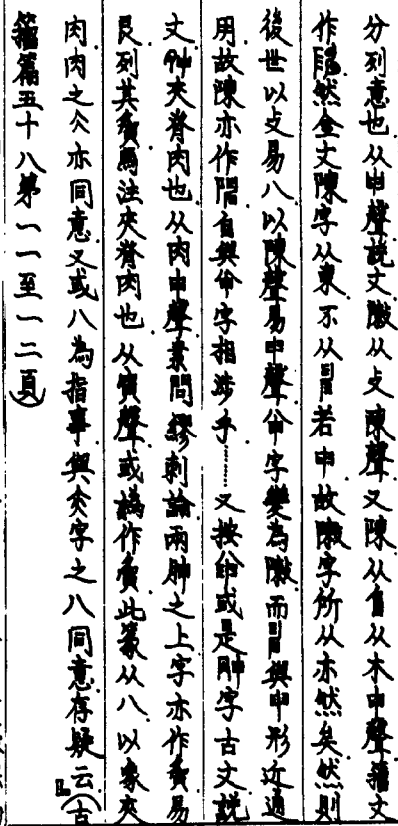 分列意也从申聲說文敶从攴陳聲又陳从𨸏从木申聲籀文
作然金文陳字从東不从若申故敶字所从亦然矣然則
後世以攴易八以陳聲易申聲字變為敶而與申形近通
用故陳亦作自與字相涉乎……又按或是胂字古文說
文胂夾脊肉也从肉申聲素問繆刺論兩胂之上字亦作䏖易
艮列其夤馬注夾脊肉也从寅聲或作此篆从八以象夾
肉肉之仌亦同意又或八為指事與字之八同意存疑云（古
籀篇五十八第一一至一二頁）